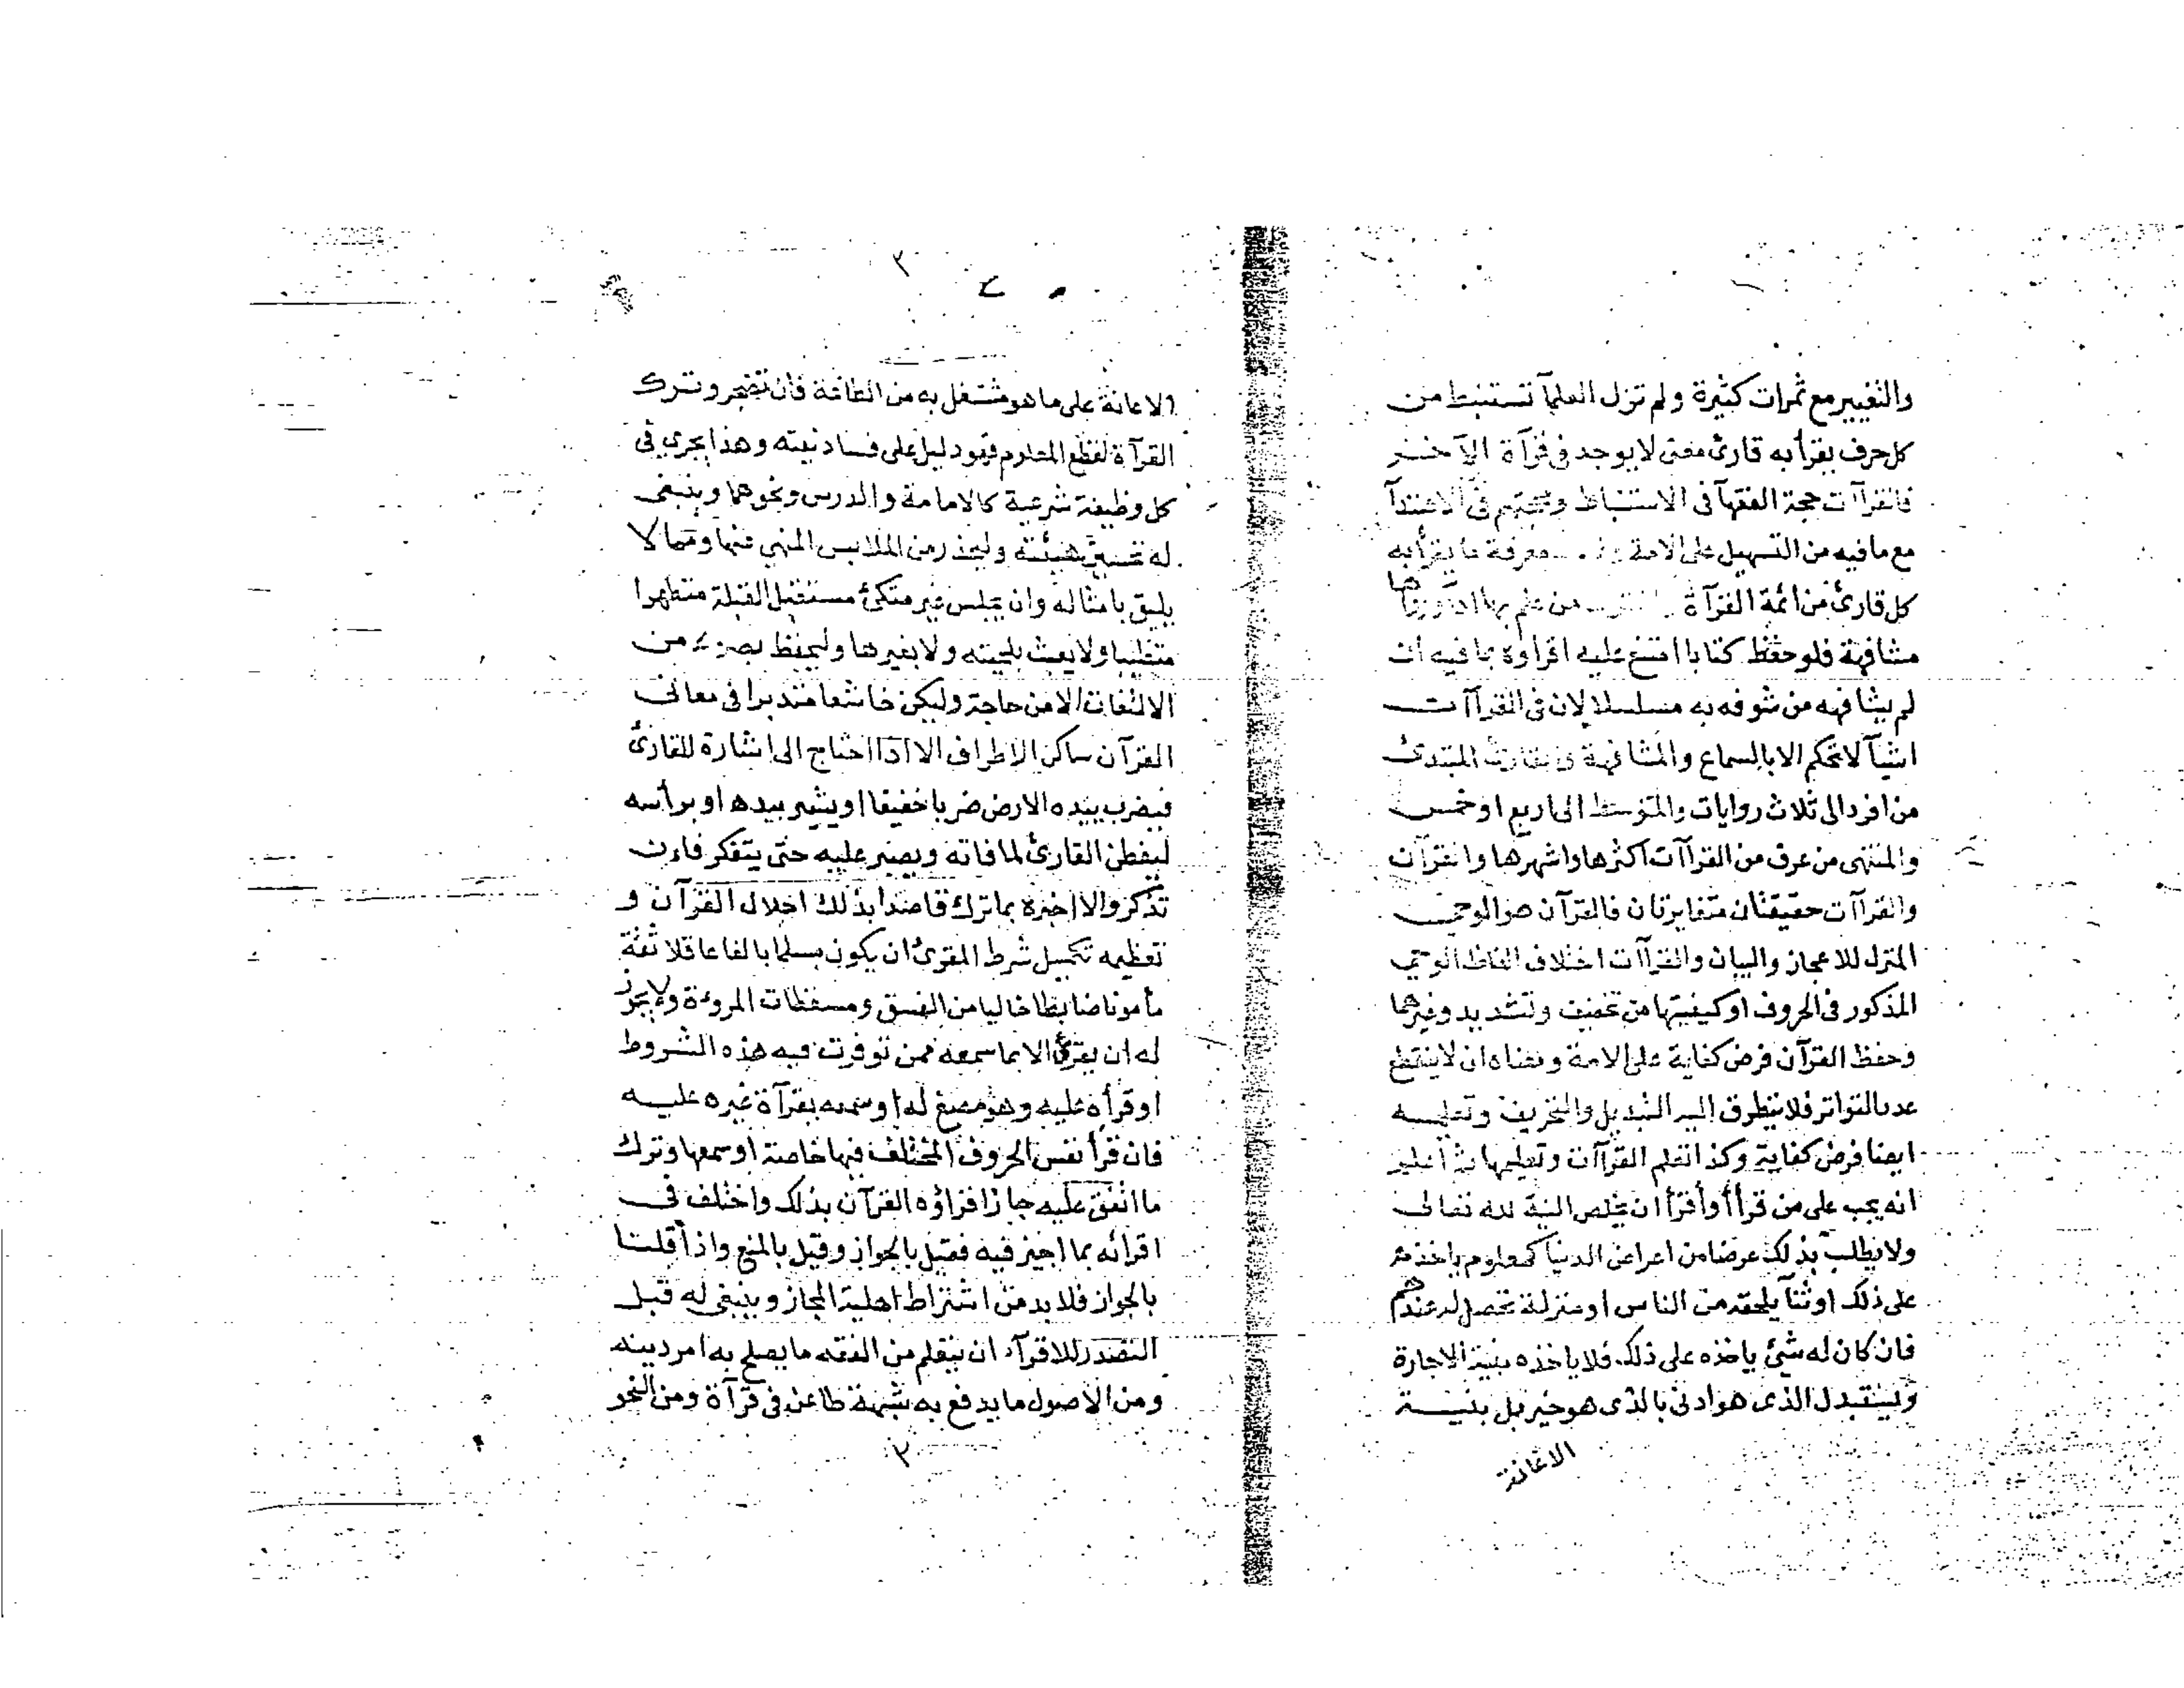 والتغيير مع ثمرات كثيرة ولم تزل العلمآ تستنبط من
كل حرف يقرأ به قارئ معنى لا يوجد في قرآة الآخر
فالقراآت حجة الفقهآ في الاستنباط ومحجتهم في الاهتدآ
مع ما فيه من التسهيل على الامة معرفة ما يقرأ به
كل قارئ من ائمة القرآة من علم بها ادآ ورواها
مشافهة فلو حفظ كتابا امتنع عليه اقراوه بما فيه ان
لم يشافهه من شوفه به مسلسلا لان في القراآت
اشيآ لا تحكم الا بالسماع والمشافهة فالقارئ المبتدئ
من افرد الى ثلاث روايات والمتوسط الى اربع او خمس
والمنتهى من عرف من القراآت اكثرها واشهرها والقرآن
والقراآت حقيقتان متغايرتان فالقرآن هو الوحي
المنزل للاعجاز والبيان والقراآت اختلاف الفاظ الوحي
المذكور في الحروف او كيفيتها من تخفيف وتشديد وغيرهما
وحفظ القرآن فرض كفاية على الامة ومعناه ان لا ينقطع
عدد التواتر فلا يتطرق اليه التبديل والتحريف وتعليمه
ايضا فرض كفاية وكذا تعلم القراآت وتعليمها ثم اعلم
انه يجب على من قرأ أو أقرأ ان يخلص النية لله تعالى
ولا يطلب بذلك عرضا من اعراض الدنيا كمعلوم ياخذه
على ذلك او ثنآ يلحقه من الناس او منزلة تحصل له عندهم
فان كان له شئ ياخذه على ذلك فلا ياخذه بنية الاجارة
وليستبدل الذى هو ادنى بالذى هو خير بل بنية
الاعانة
الاعانة على ما هو مشتغل به من الطاعة فان تضجر وترك
القرآة لقطع المعلوم فهو دليل على فساد نيته وهذا يجري في
كل وظيفة شرعية كالامامة والدرس ونحوهما وينبغي
له تحسين هيئته وليحذر من الملابس المنهي عنها ومما لا
يليق بامثاله وان يجلس غير متكئ مستقبل القبلة متطهرا
متطيبا ولا يعبث بلحيته ولا بغيرها وليحفظ بصره من
الالتفات الا من حاجة وليكن خاشعا متدبرا في معاني
القرآن ساكن الاطراف الا اذا احتاج الى اشارة للقارئ
فيضرب بيده الارض ضربا خفيفا او يشير بيده او برأسه
ليفطن القارئ لما فاته ويصبر عليه حتى يتفكر فان
تذكر والا اخبره بما ترك قاصدا بذلك اجلال القرآن و
تعظيمه تكميل شرط المقرئ ان يكون مسلما بالغا عاقلا ثقة
مأمونا ضابطا خاليا من الفسق ومسقطات المروءة ولا يجوز
له ان يقرئ الا بما سمعه ممن توفرت فيه هذه الشروط
او قرأه عليه وهو مصغ له او سمعه بقرآة غيره عليه
فان قرأ نفس الحروف المختلف فيها خاصة او سمعها وترك
ما اتفق عليه جاز اقراؤه القرآن بذلك واختلف في
اقرائه بما اجيز فيه فقيل بالجواز وقيل بالمنع واذا قلنا
بالجواز فلا بد من اشتراط اهلية المجاز وينبغي له قبل
التصدر للاقرآء ان يتعلم من الفقه ما يصلح به امر دينه
ومن الاصول ما يدفع به شبهة طاعن في قرآة ومن النحو